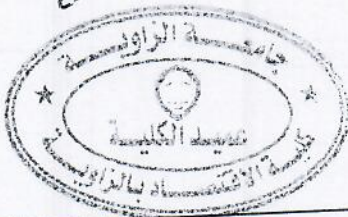 جامعة الزاويـــة
عميد الكليـــة
كليـــة الاقتصـــاد بـالزاويـــة